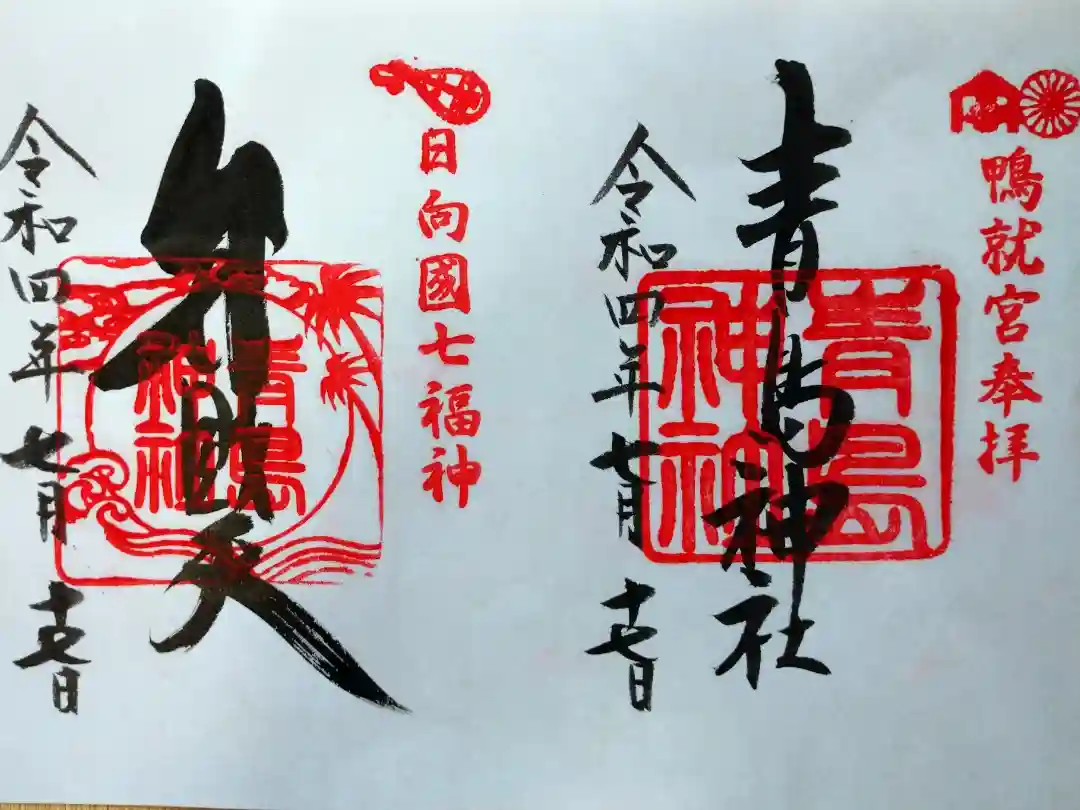 鴨就宮奉拝
青島神社
青島
神社
令和四年七月十七日
日向國七福神
弁財天
青島
神社
令和四年七月十七日